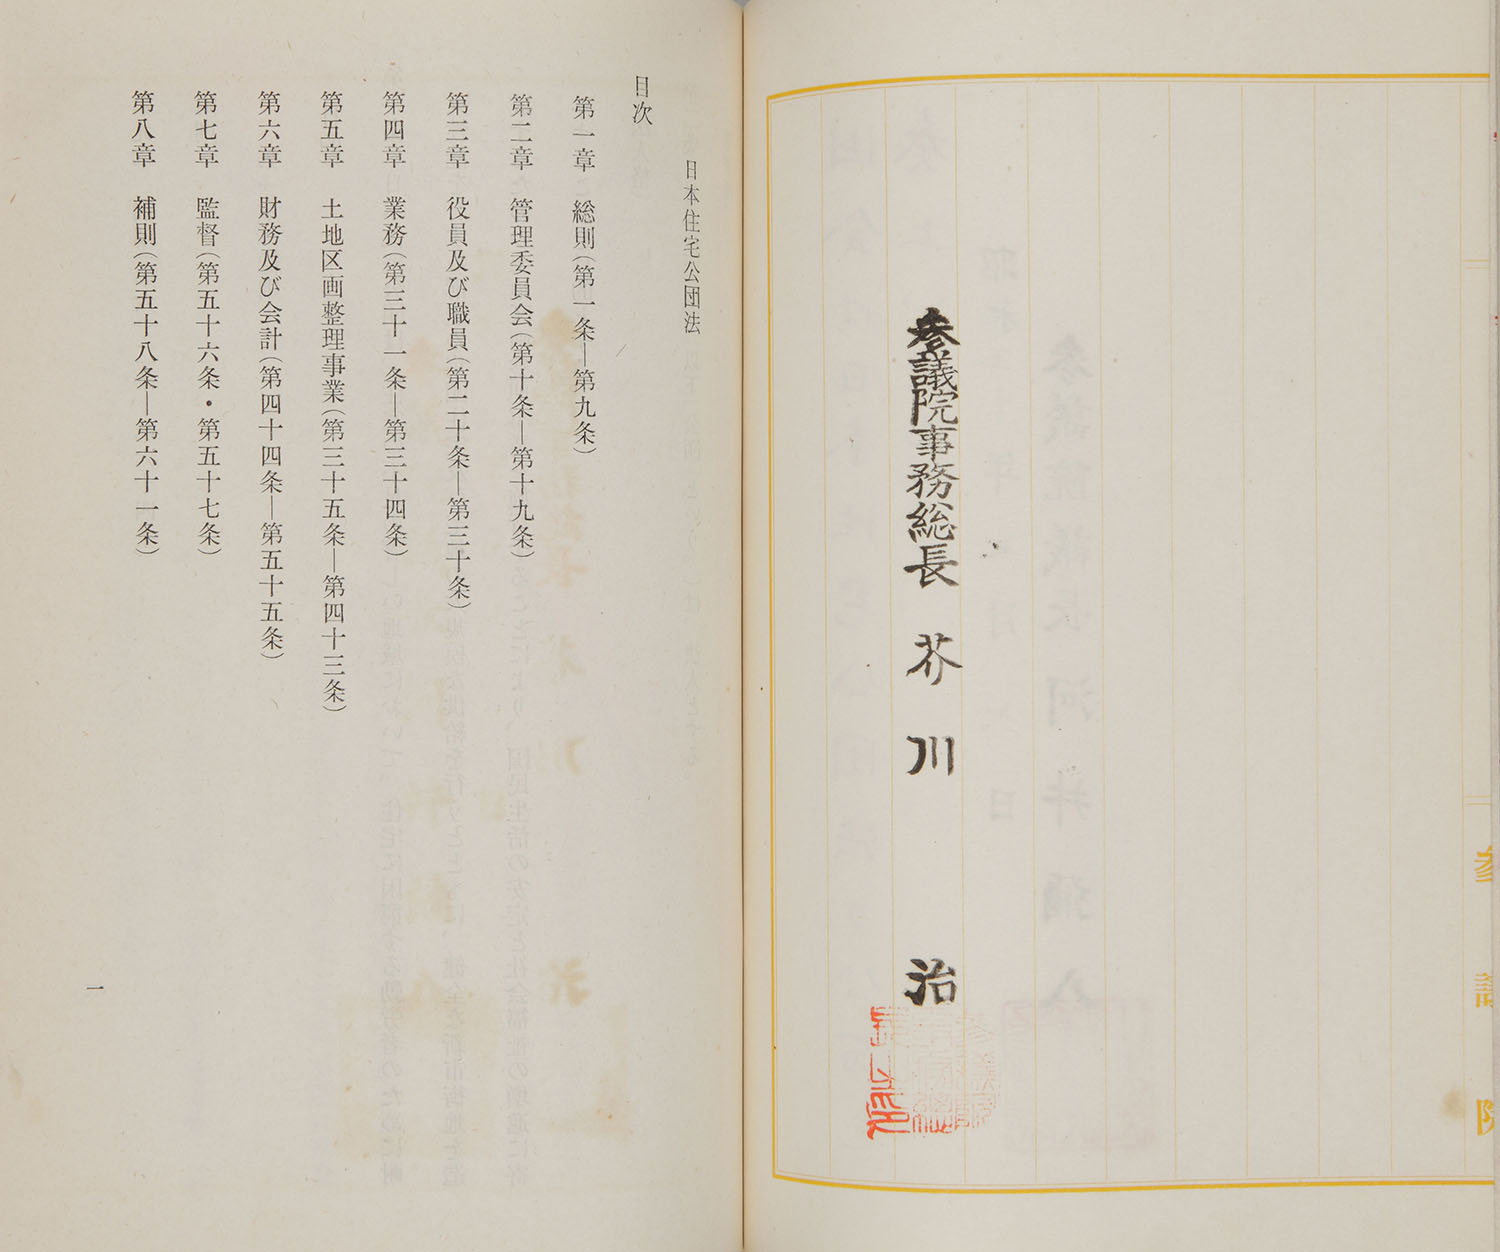 参議院事務総長 芥川 治
参議院
日本住宅公団法
目次
第一章 総則(第一条―第九条)
第二章 管理委員会(第十条―第十九条)
第三章 役員及び職員(第二十条―第三十条)
第四章 業務(第三十一条―第三十四条)
第五章 土地区画整理事業(第三十五条―第四十三条)
第六章 財務及び会計(第四十四条―第五十五条)
第七章 監督(第五十六条・第五十七条)
第八章 補則(第五十八条―第六十一条)
一